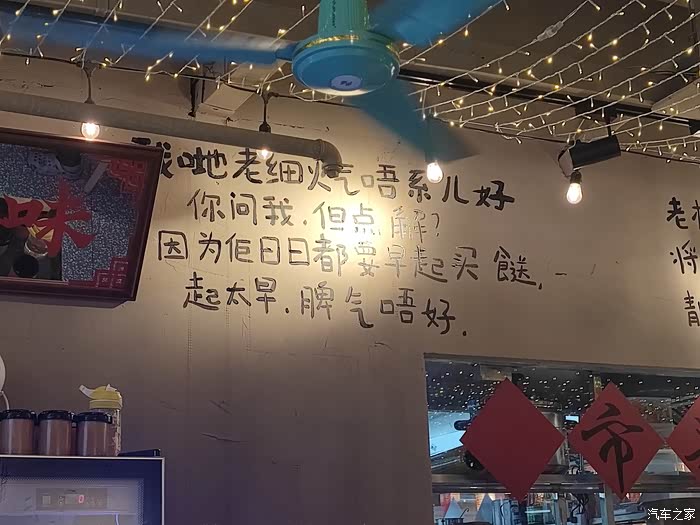 味
我哋老细火气唔系几好
你问我.但点解?
因为佢日日都要早起买餸.
起太早.脾气唔好.
老
将
青
市
汽车之家